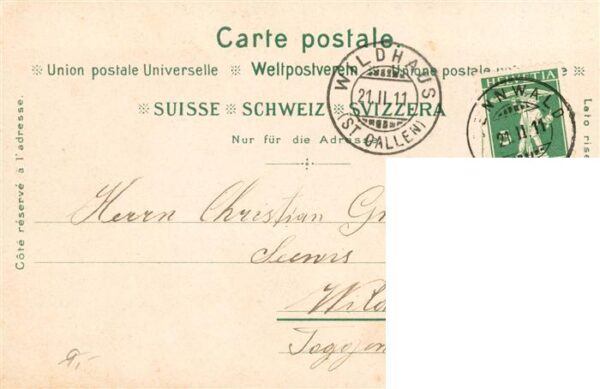 Carte postale.
※ Union postale Universelle ※ Weltpostverein ※ Unione postale ※
※ SUISSE ※ SCHWEIZ ※ SVIZZERA
Nur für die Adresse
Côté réservé à l'adresse.
Lato rise
WILDHAUS
21.II.11
(ST. GALLEN)
HELVETIA
21.II.11
Herrn Christian
Wild
9.-